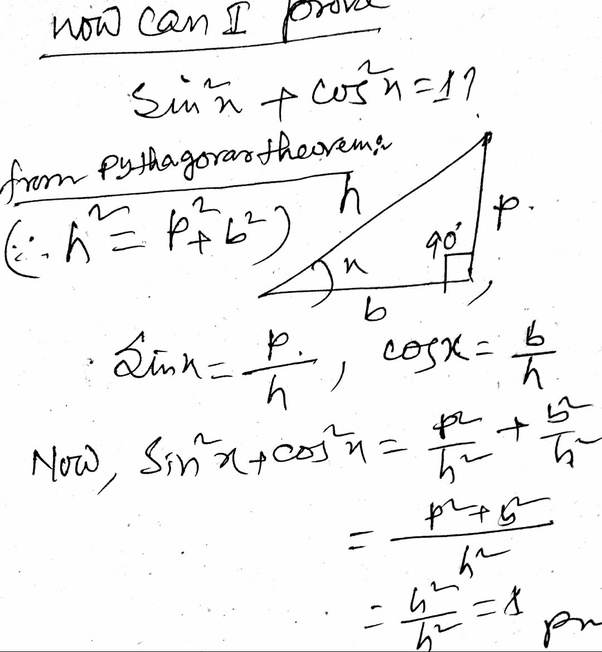 now can I prove
sin²x + cos²x = 1?
from pythagoras theorem:
(∴ h² = p² + b²)
h
p.
90°
x
b
Sinx = p/h, cosx = b/h
Now, Sin²x + cos²x = p²/h² + b²/h²
= p² + b²/h²
= h²/h² = 1